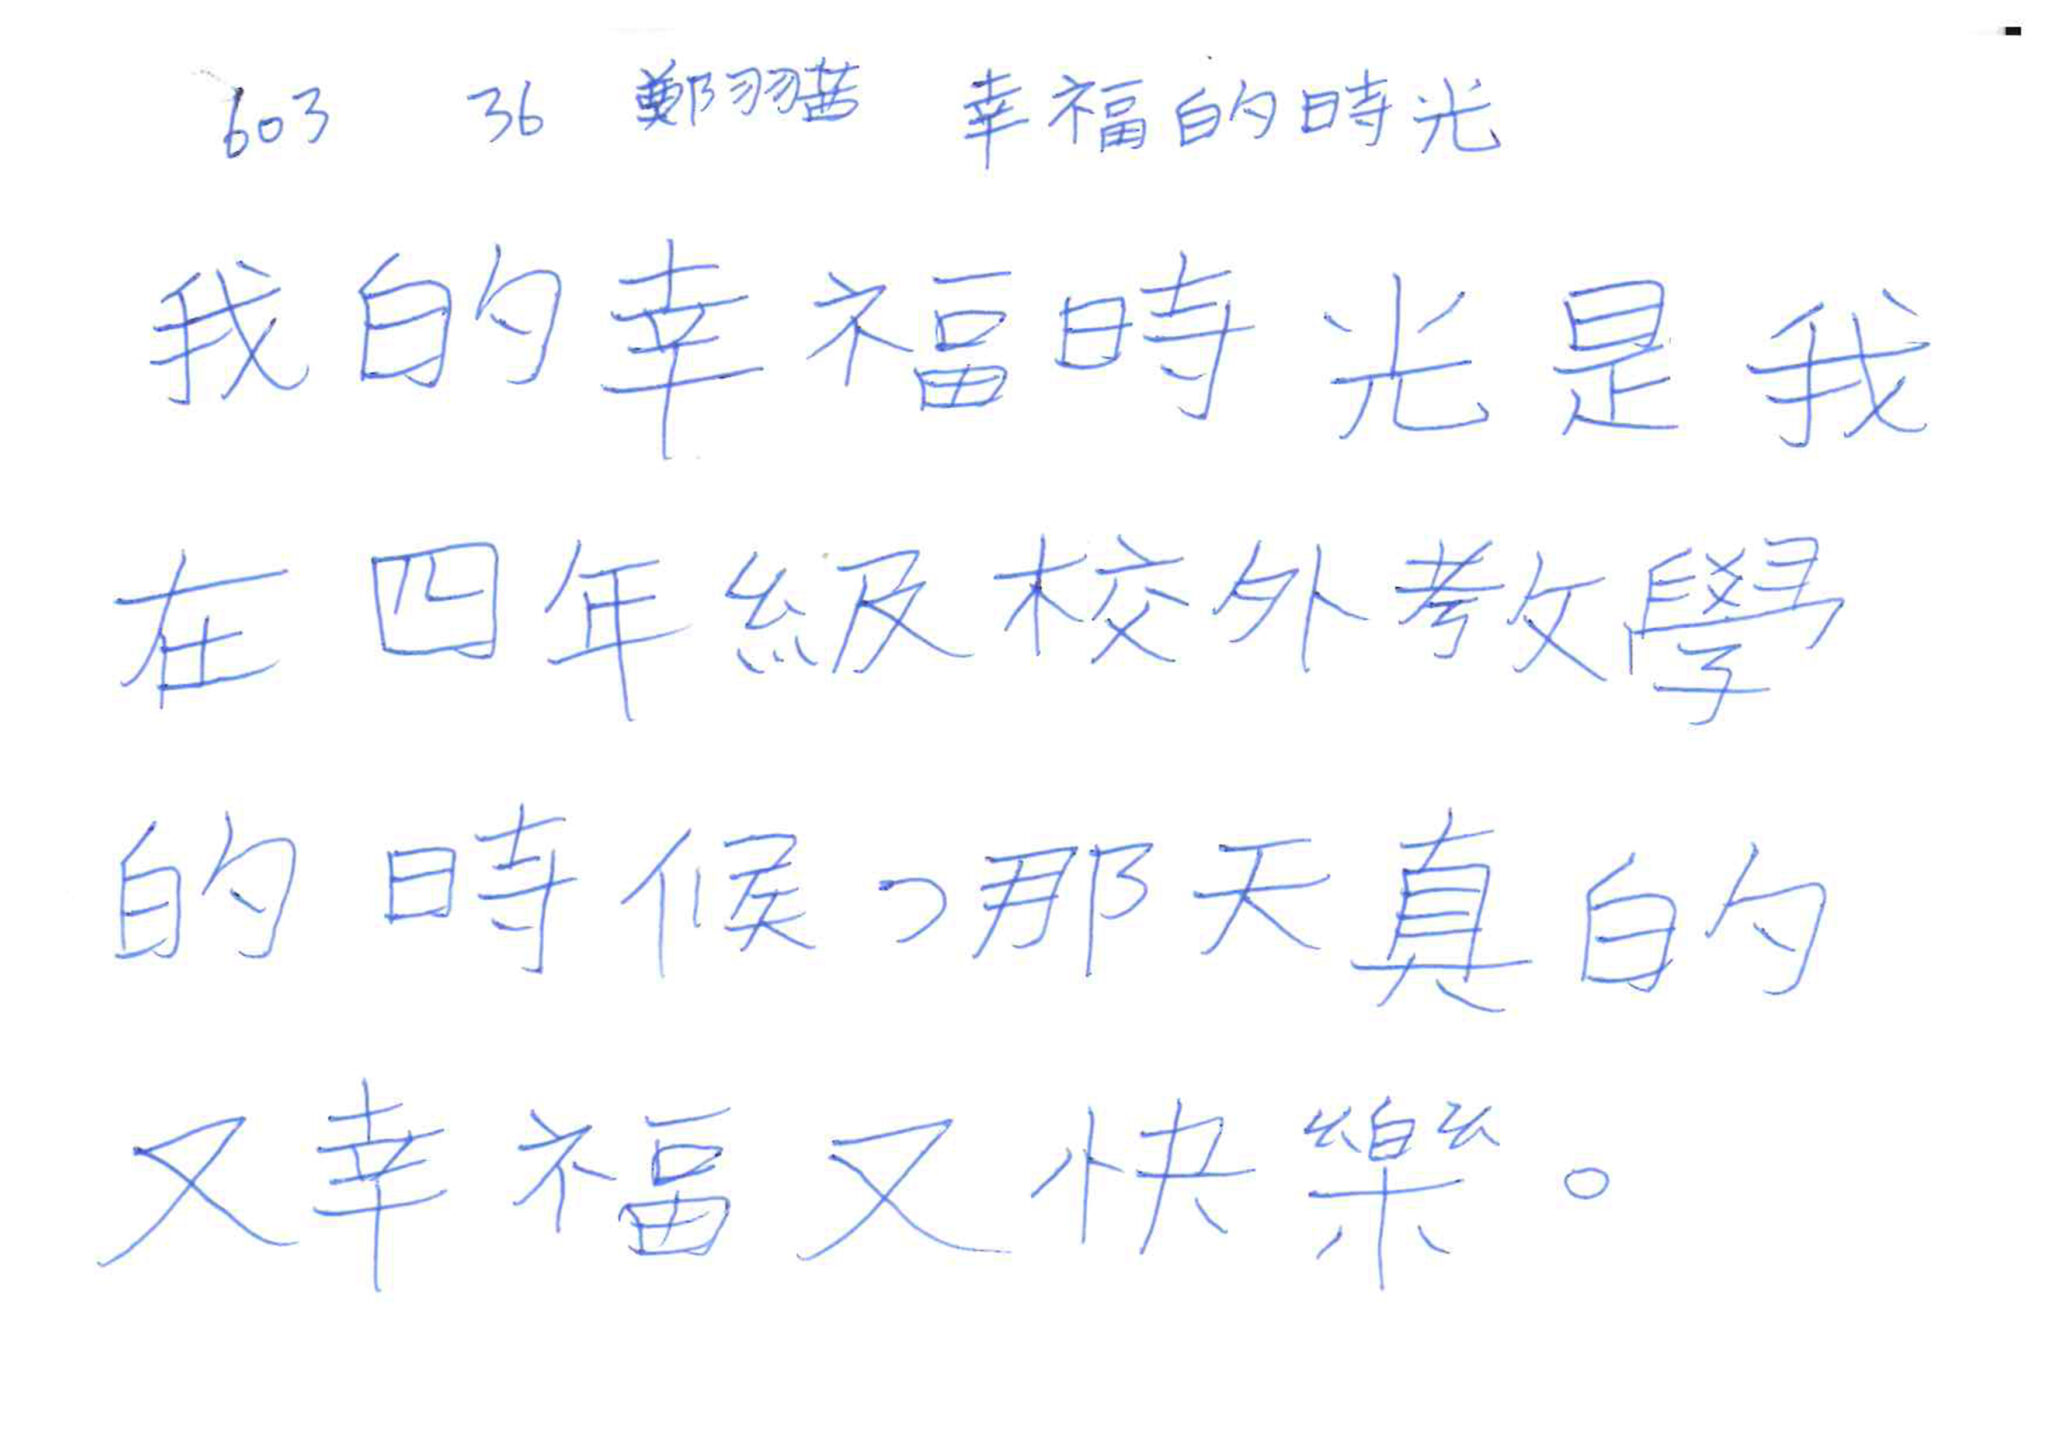 603 36 鄭羽 幸福的時光
我的幸福時光是我
在四年級校外教學
的時候,那天真的
又幸福又快樂。